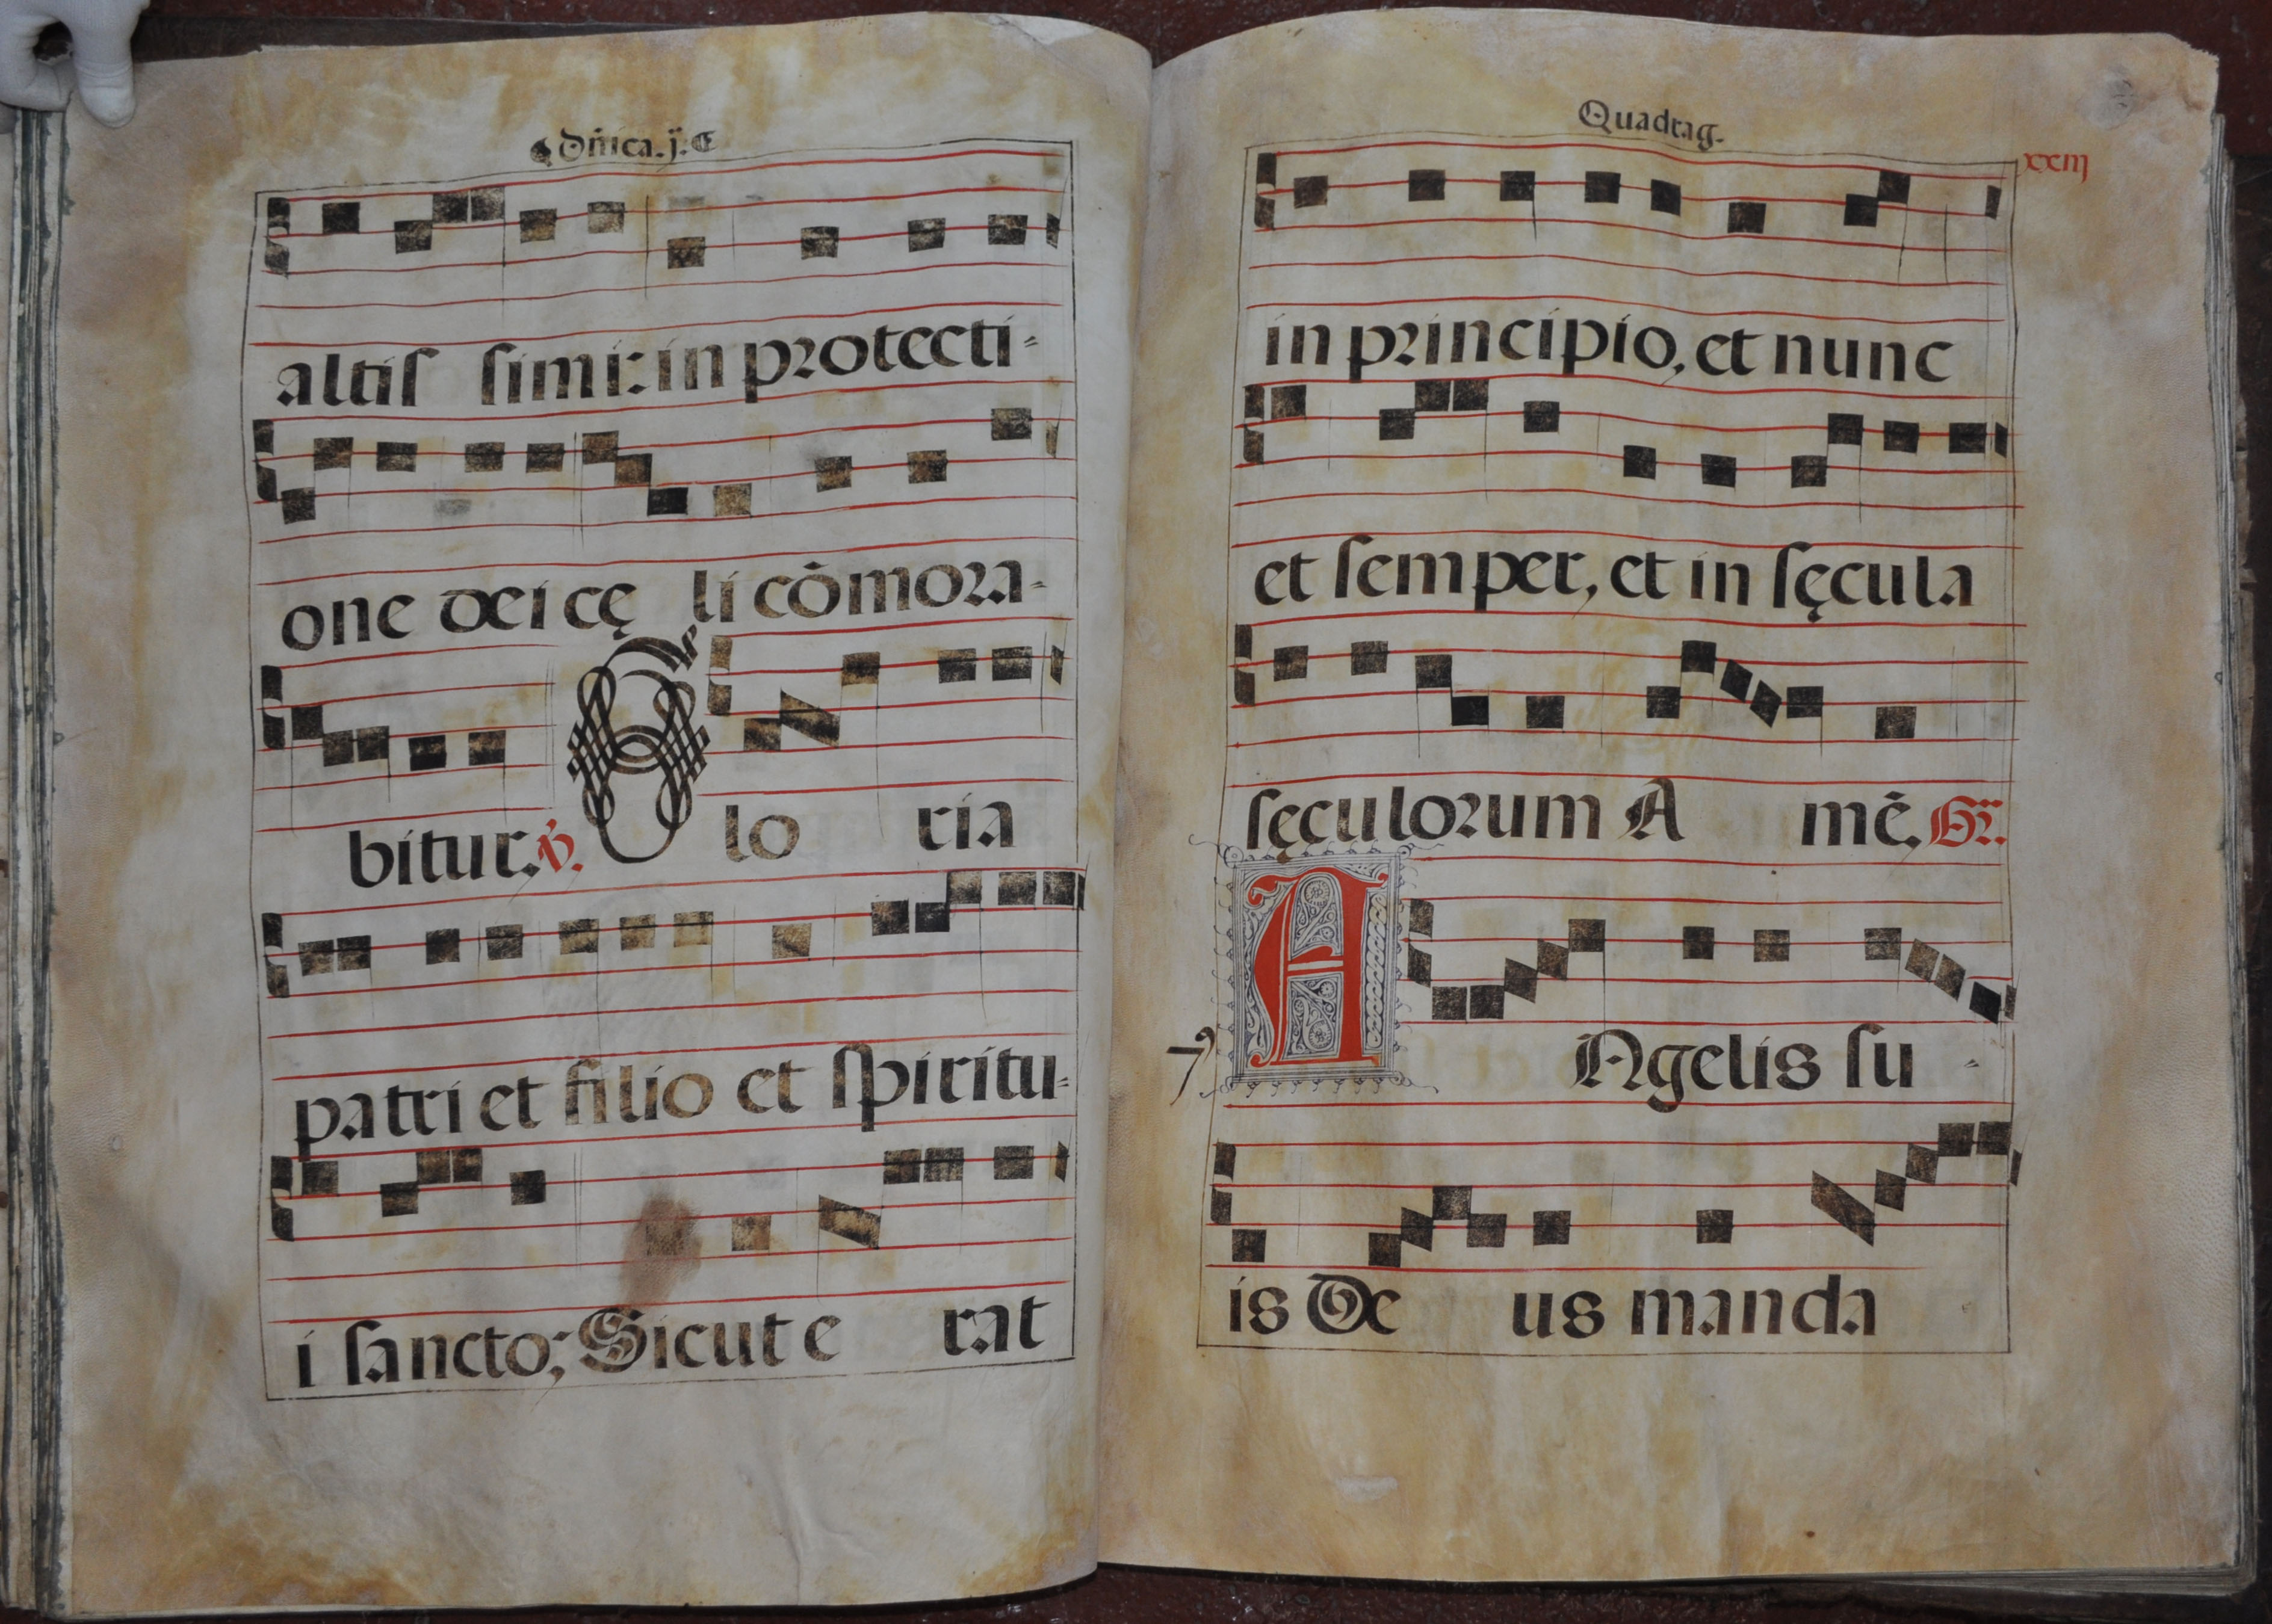 Dñica. j.
altiſ ſimi: in protecti-
one dei cę li cōmora-
bitur. ℣. Glo ria
patri et filio et ſpiritu-
i ſancto; Sicut e rat
Quadrag.
xxiij
in principio, et nunc
et ſemper, et in ſęcula
ſęculorum A mē. Gr.
7
ANgelis ſu -
is De us manda